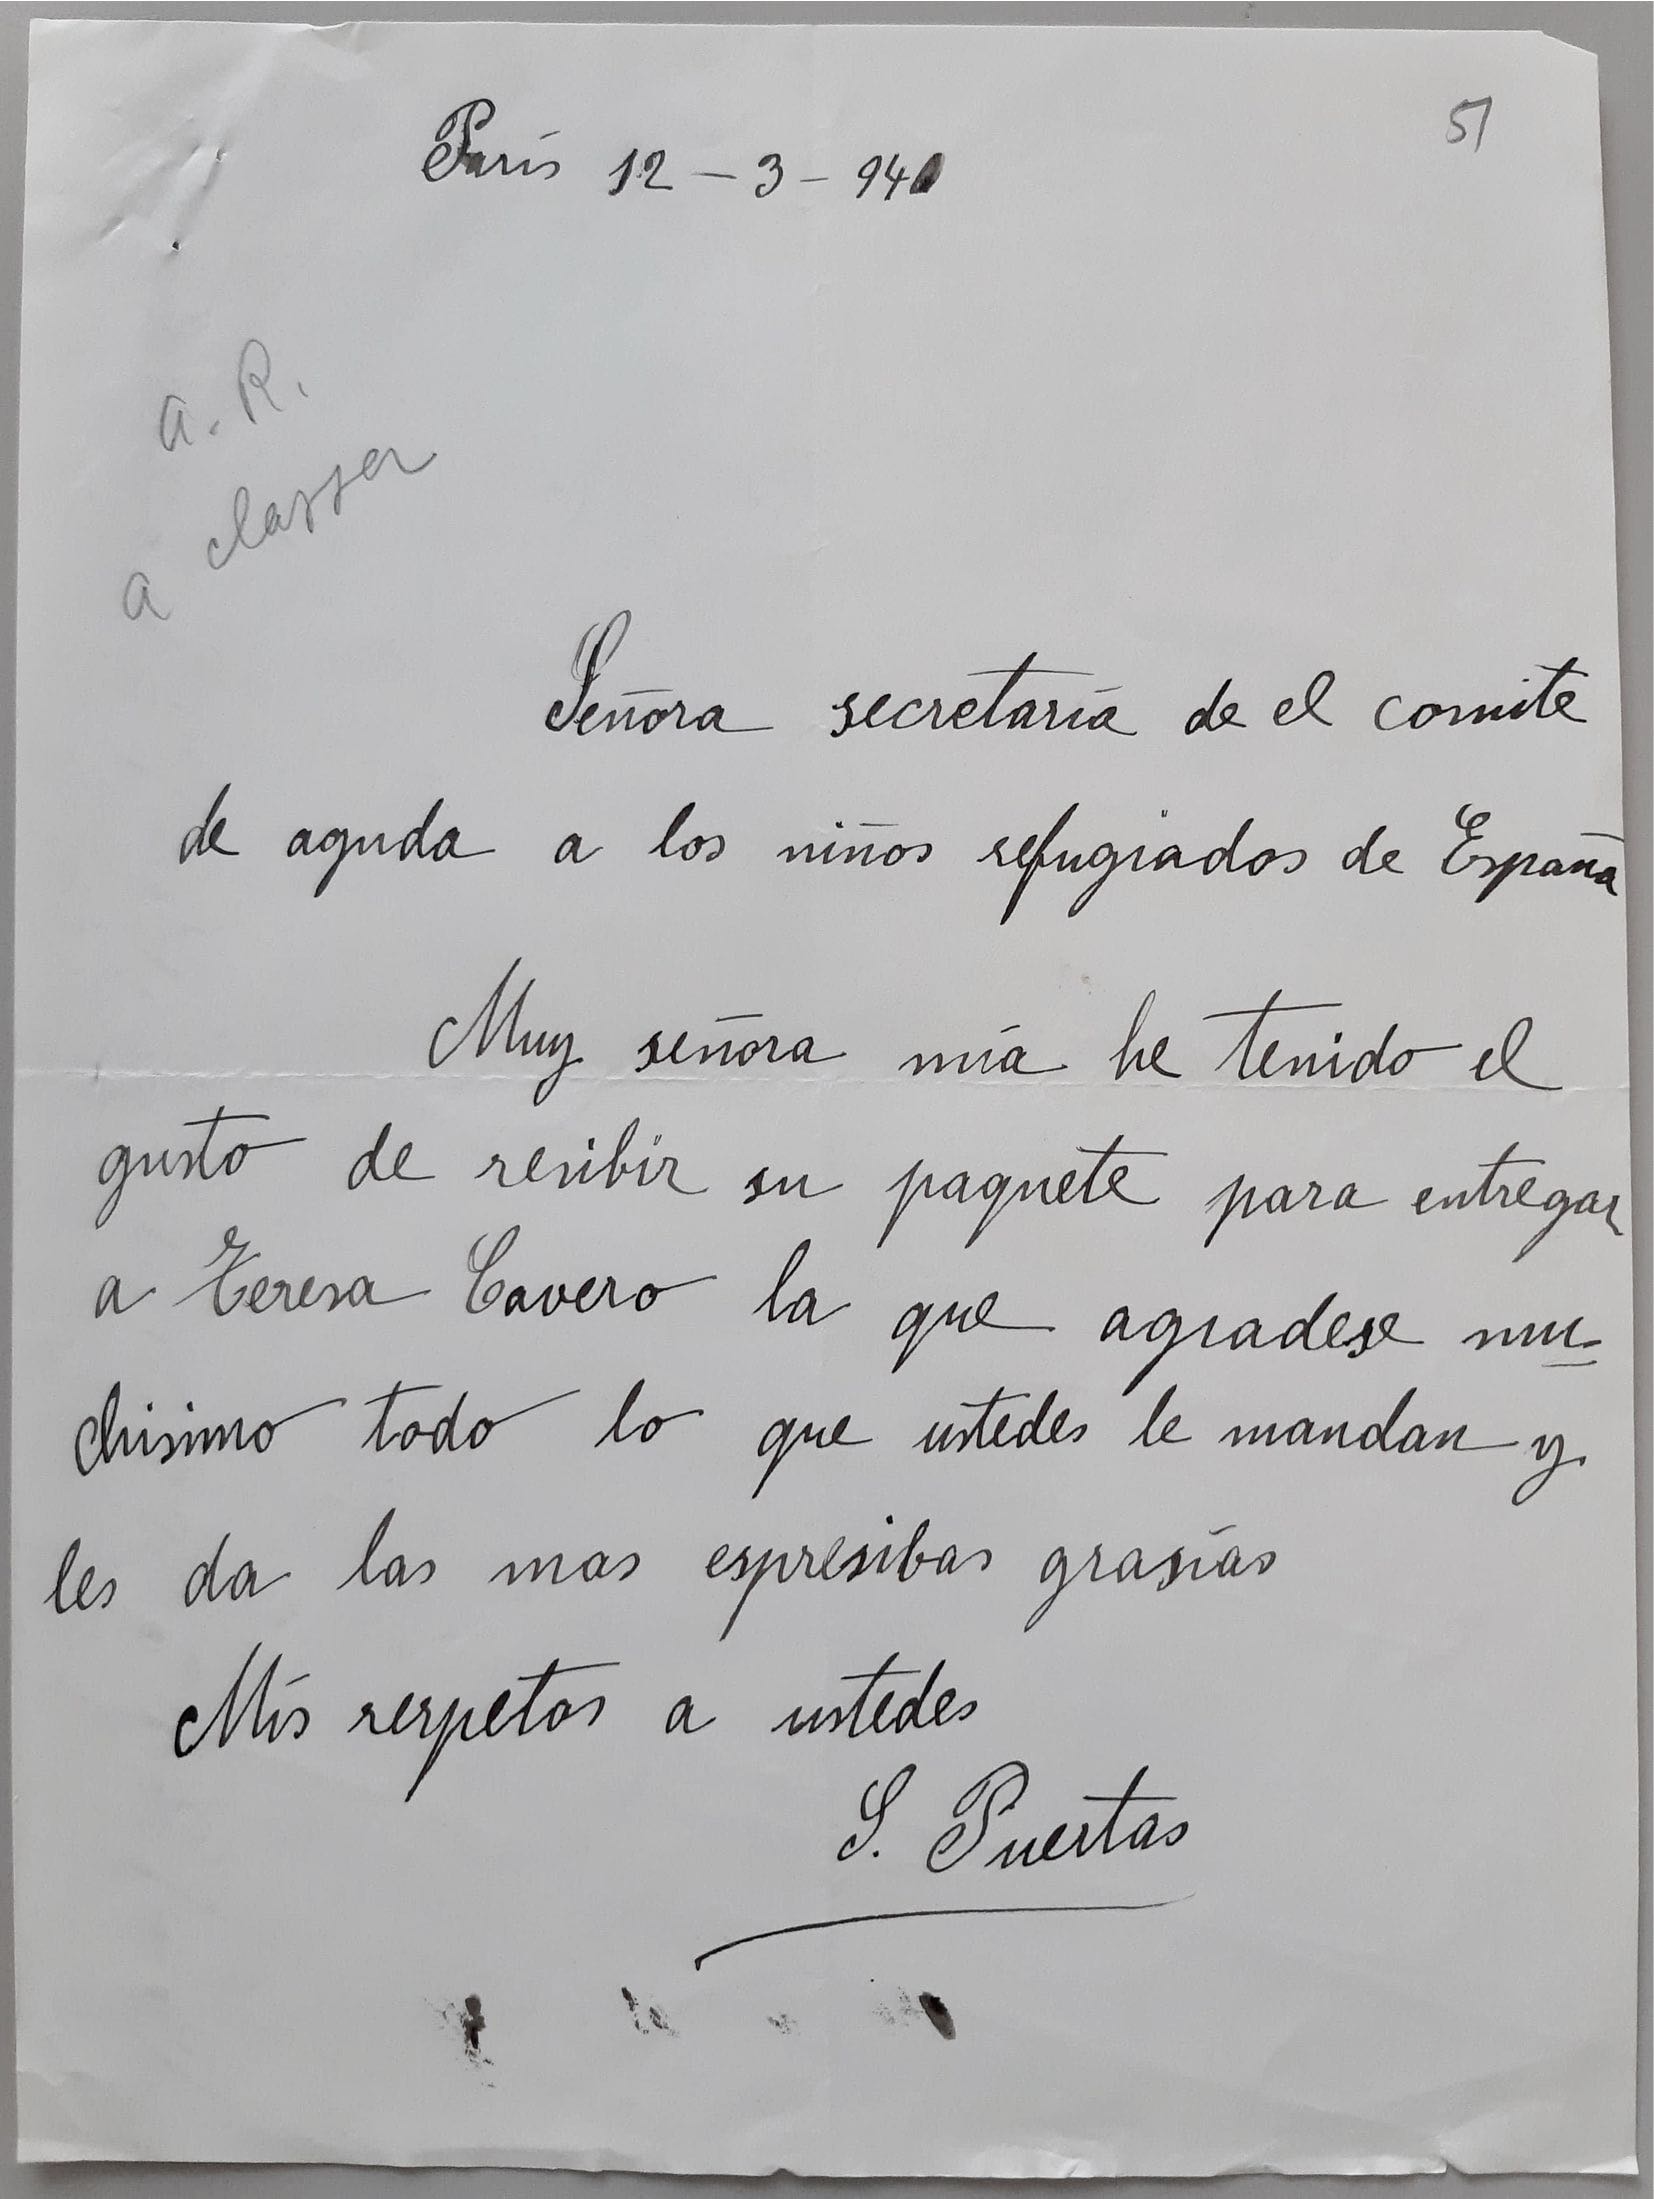 51
París 12 - 3 - 940
a. R.
a classer
Señora secretaría de el comite
de aguda a los niños refugiados de España
Muy señora mía he tenido el
gusto de resibir su paquete para entregar
a Teresa Cavero la que agradese mu-
chisimo todo lo que ustedes le mandan y
les da las mas espresibas grasías
Mís respetos a ustedes
S. Puertas